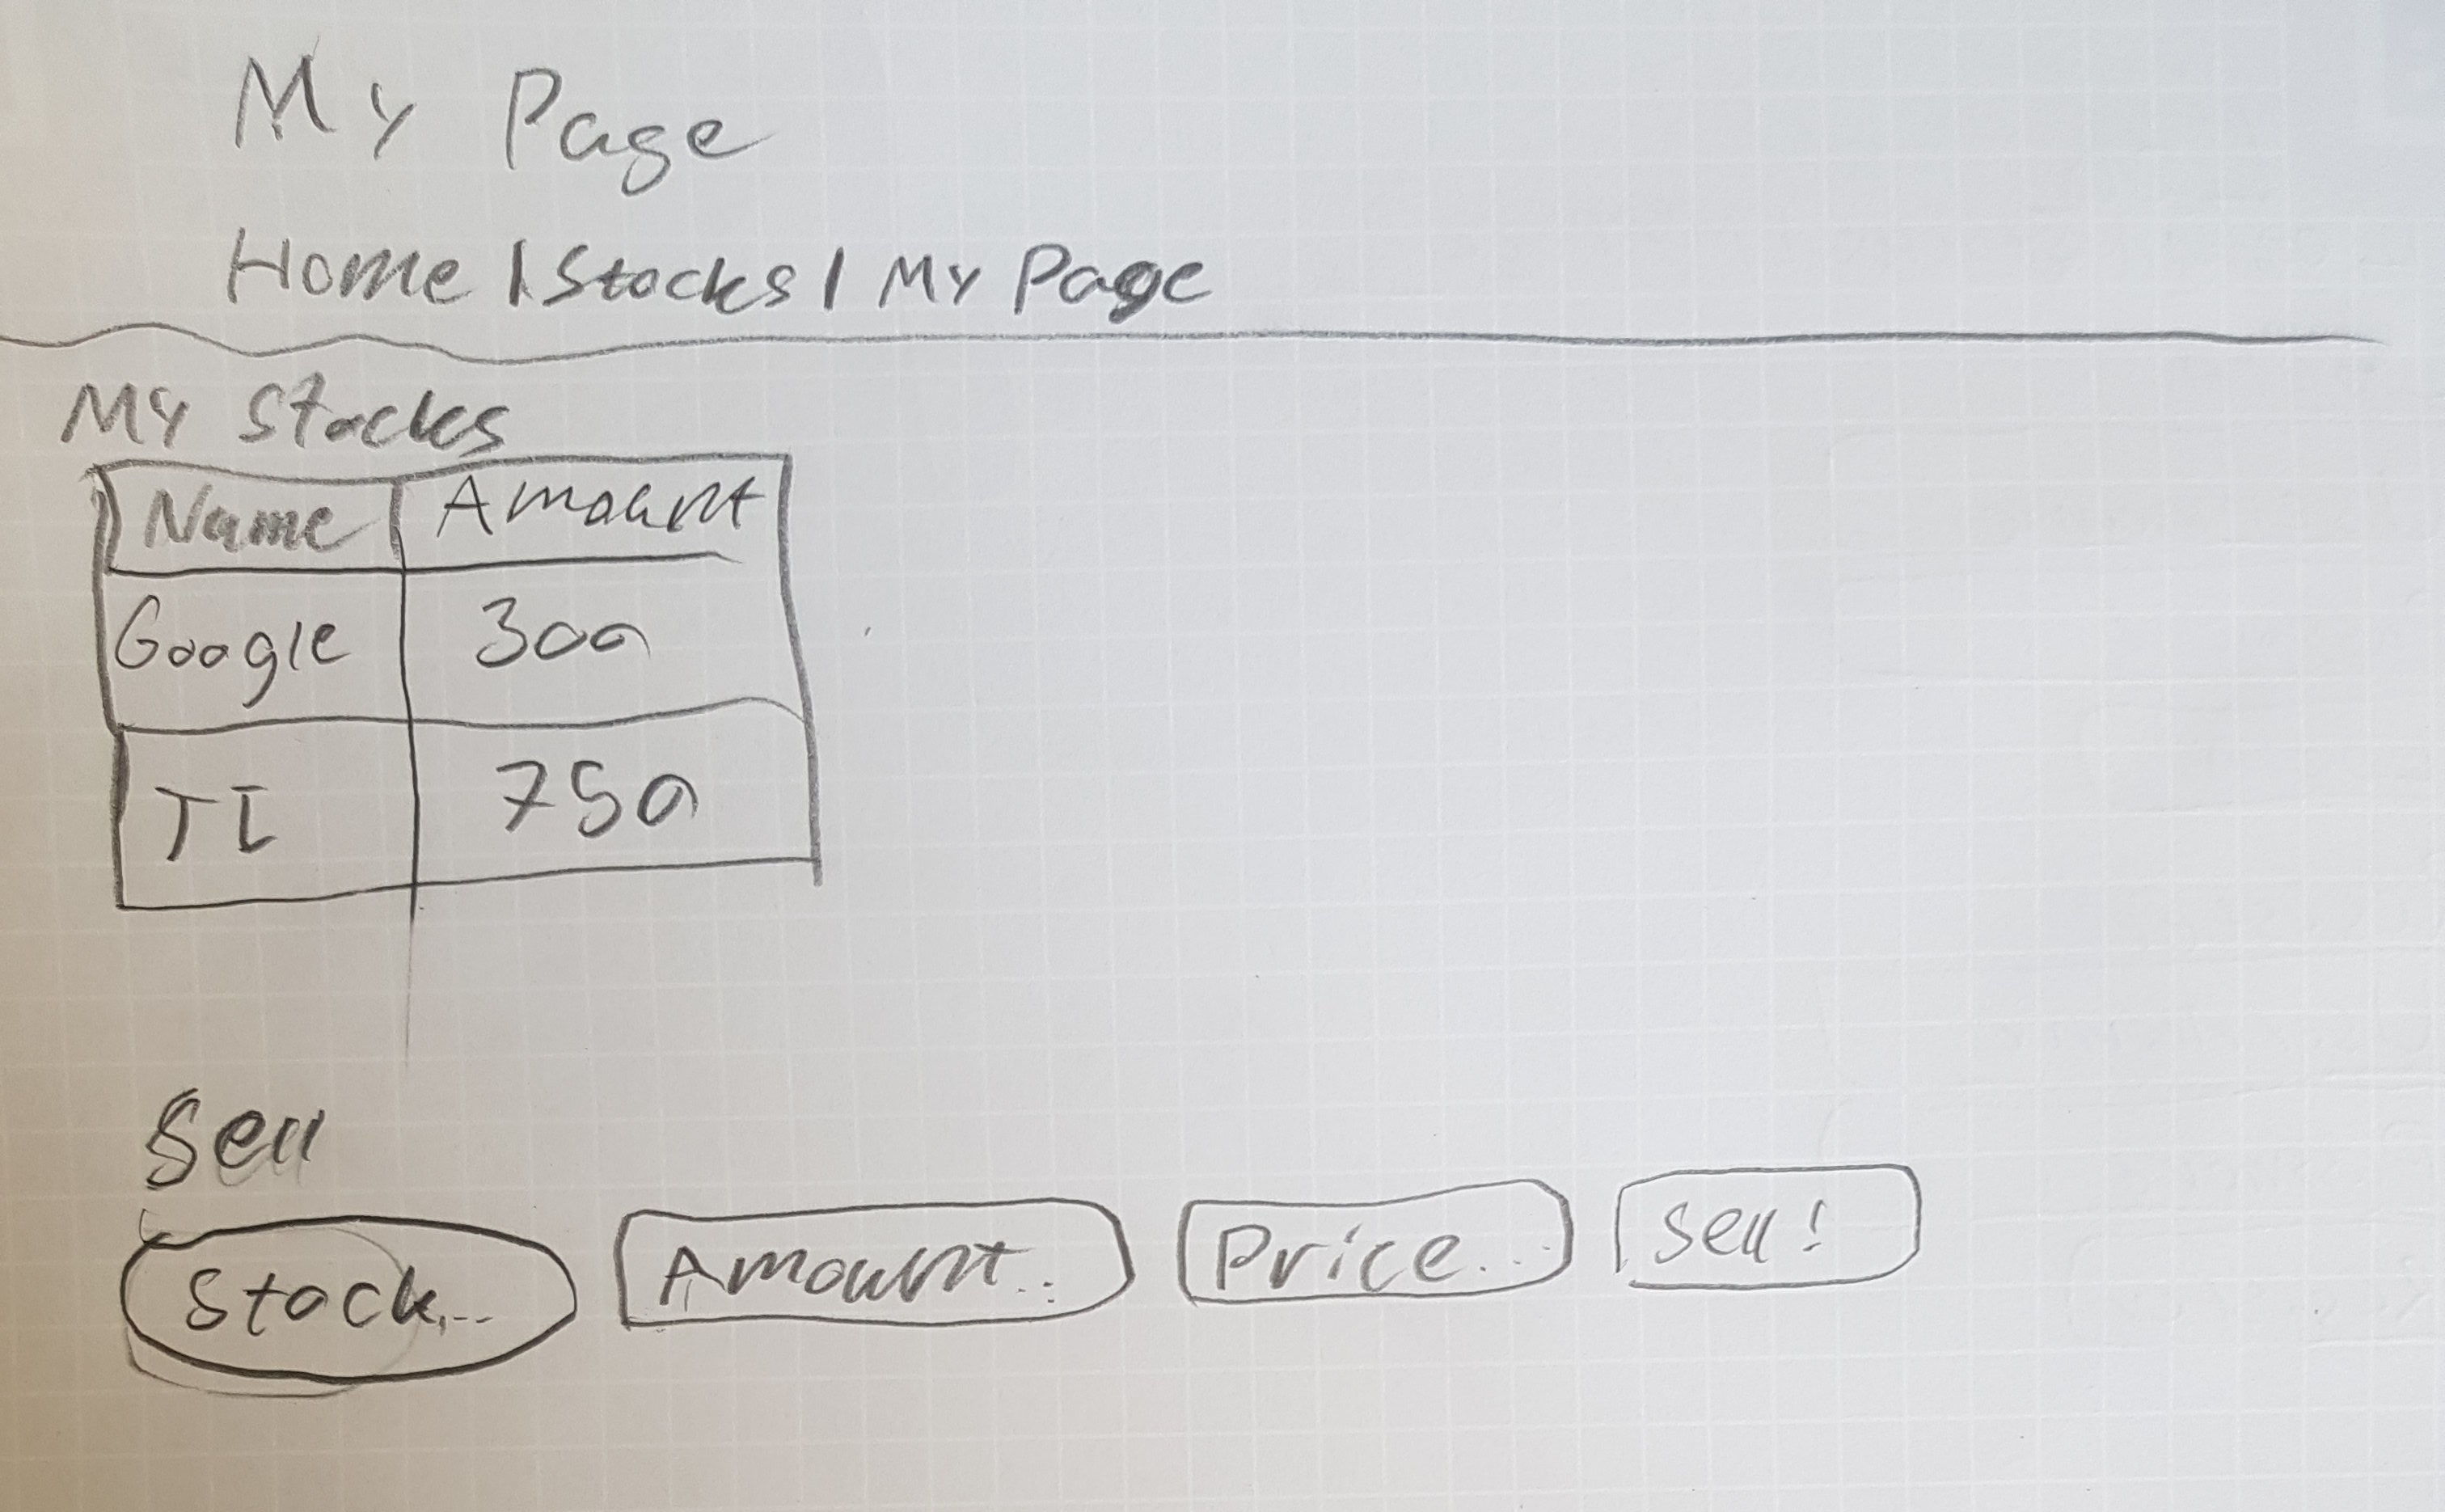 My Page
Home | Stocks | My Page
My Stocks
Name Amount
Google 300
TI 750
Sell
Stock... Amount... Price... Sell!